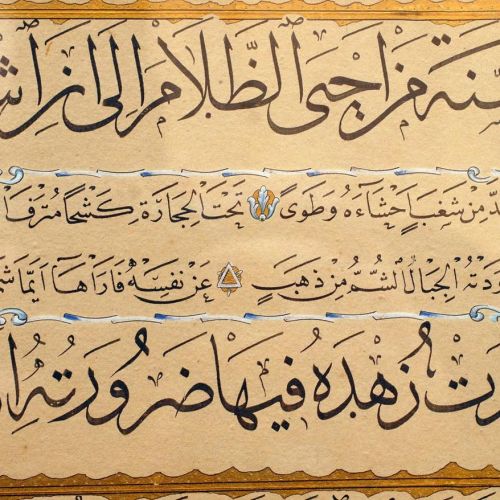 سُنَّةَ مَنْ اَحْيَى الظَّلَامَ اِلَى اَنِ اشْ
دَّ مِنْ سَغَبٍ اَحْشَاءَهُ وَطَوٰى تَحْتَ الْحِجَارَةِ كَشْحًا مُتْرَفَ ا
وَدَتْهُ الْجِبَالُ الشُّمُّ مِنْ ذَهَبٍ عَنْ نَفْسِهِ فَاَرَاهَا اَيَّمَا شَمَ
دَتْ زُهْدَهُ فِيهَا ضَرُورَتُهُ اِ